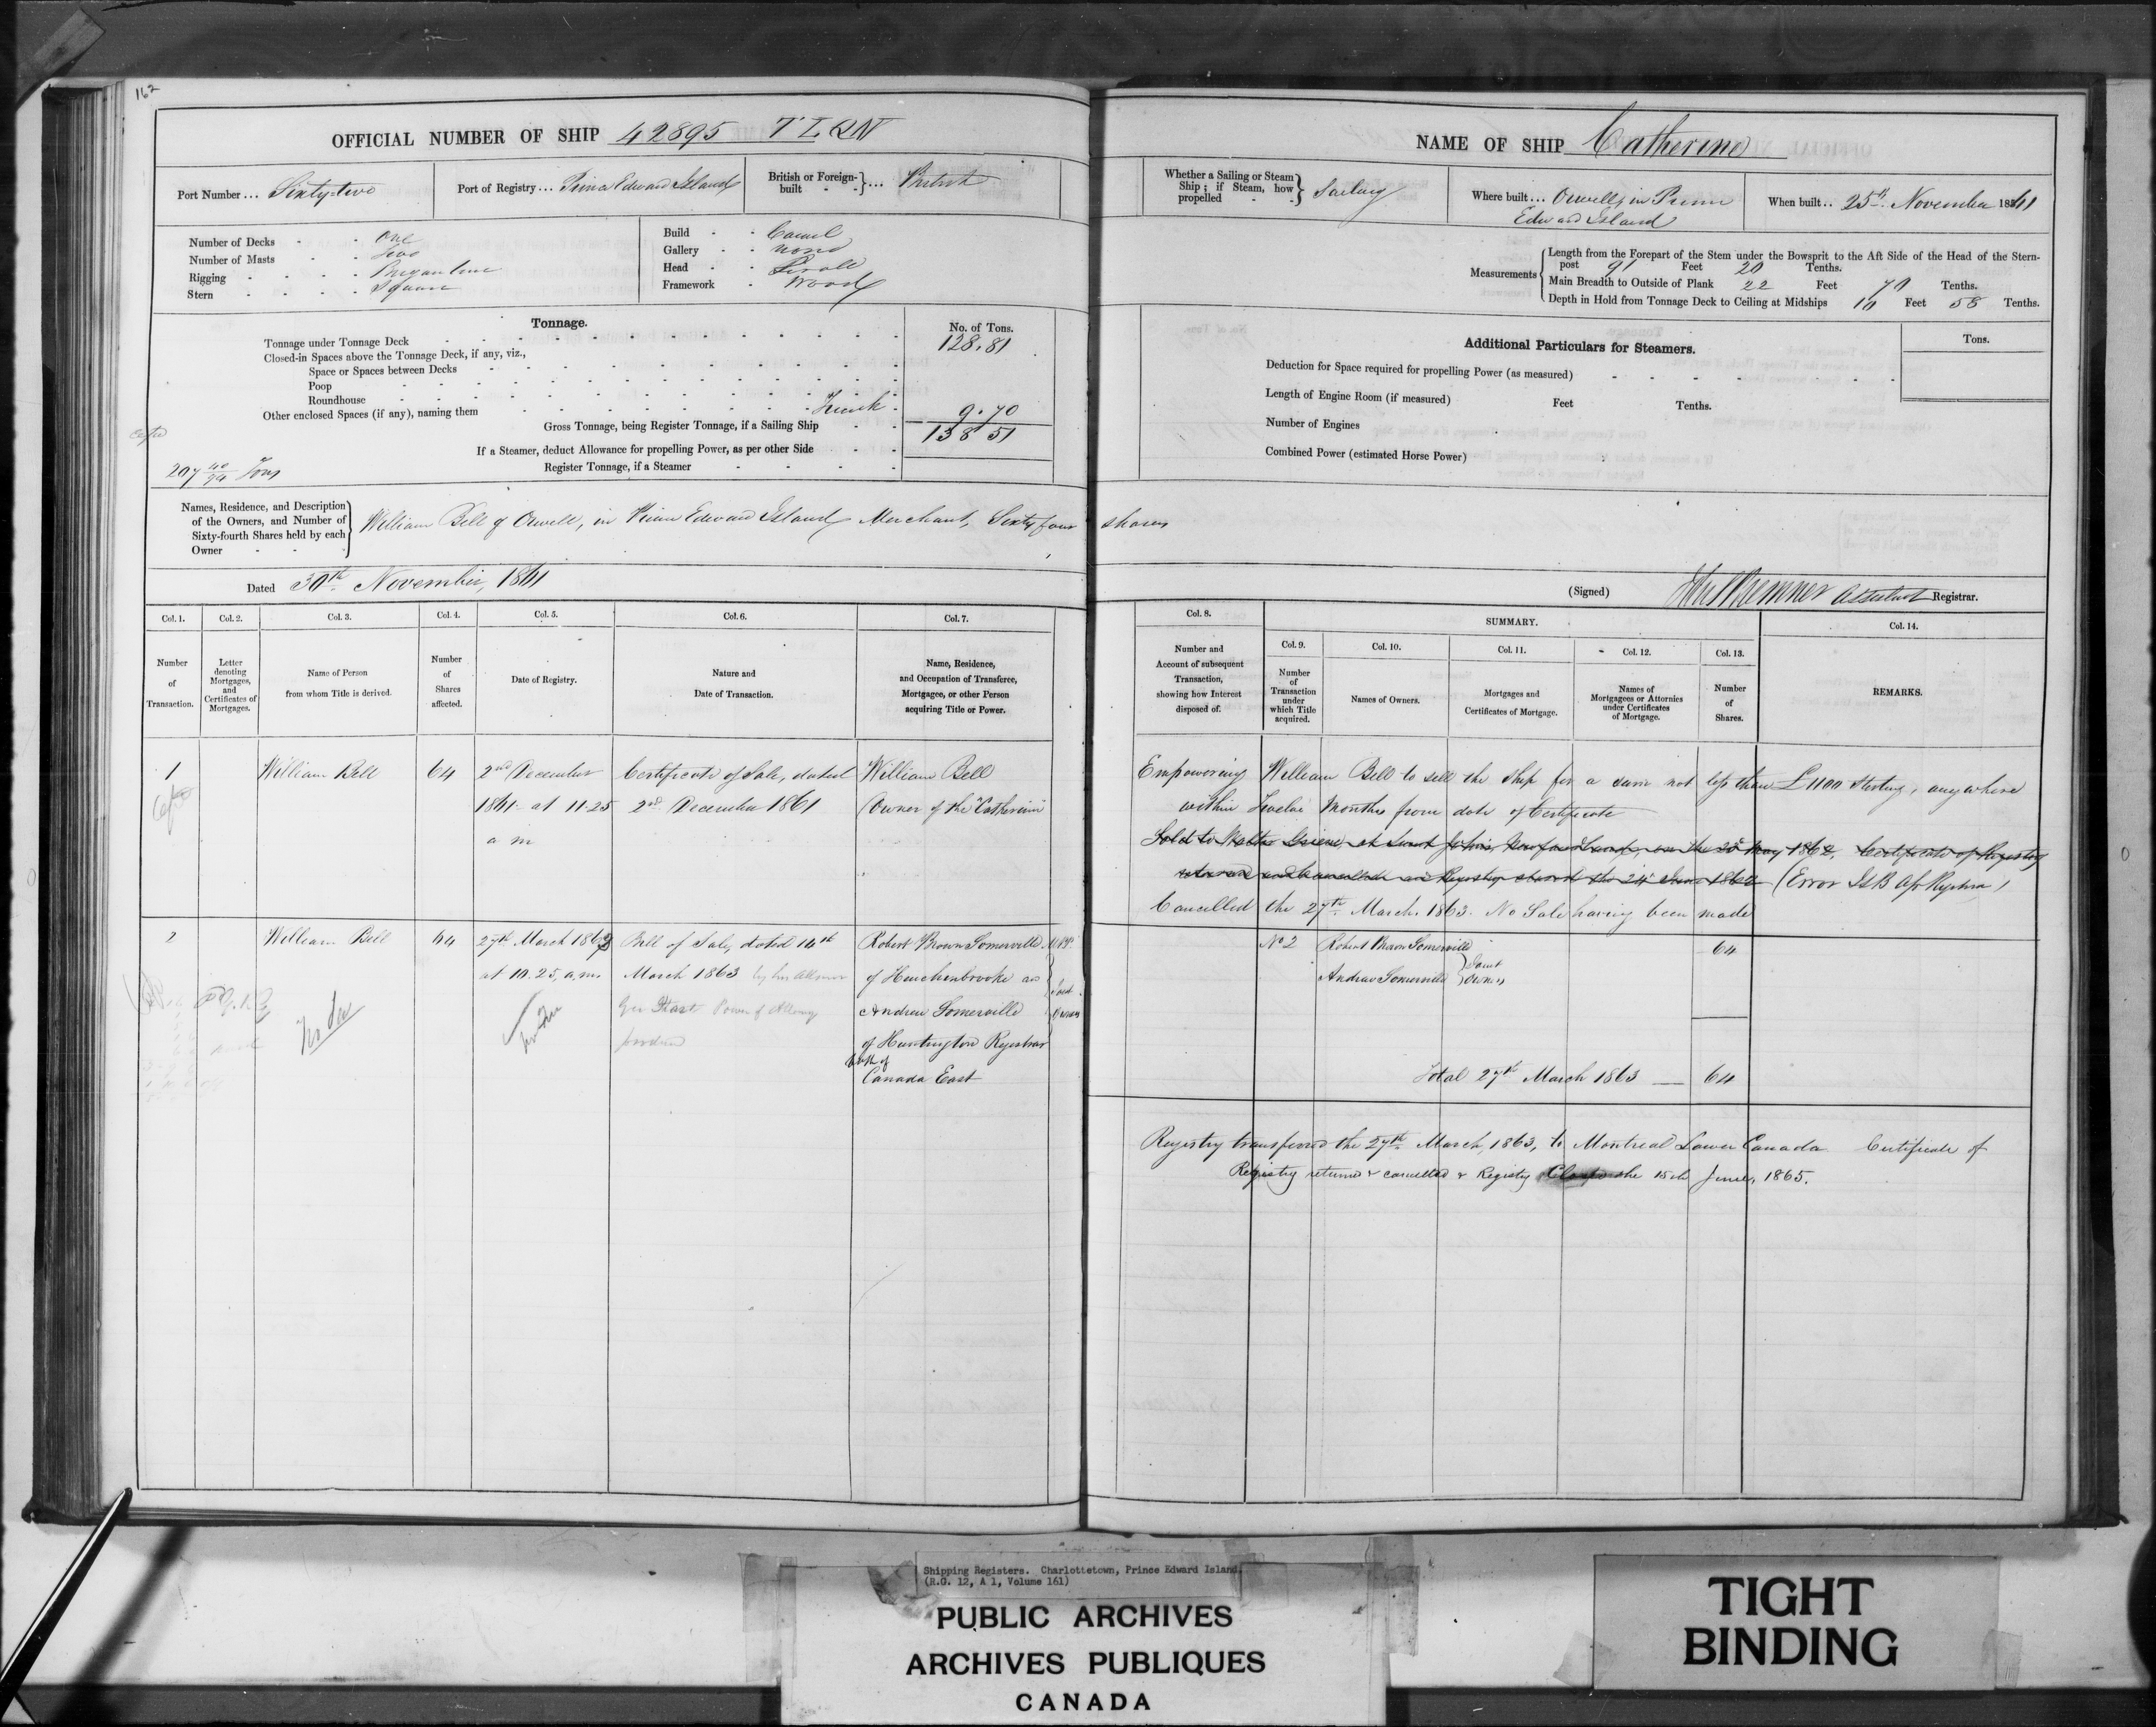 162
OFFICIAL NUMBER OF SHIP 42895 TLQN
Port Number ... Sixty-two
Port of Registry ... Prince Edward Island
British or Foreign-built } ... British
Number of Decks - - One
Number of Masts - - Two
Rigging - - - Brigantine
Stern - - - - Square
Build - - Carvel
Gallery - - None
Head - - Scroll
Framework - Wood
Tonnage.
No. of Tons.
Tonnage under Tonnage Deck 128.81
Closed-in Spaces above the Tonnage Deck, if any, viz.,
Space or Spaces between Decks
Poop
Roundhouse
Other enclosed Spaces (if any), naming them Trunk 9.70
Gross Tonnage, being Register Tonnage, if a Sailing Ship 138 51
If a Steamer, deduct Allowance for propelling Power, as per other Side
Register Tonnage, if a Steamer
207 40/94 Tons
Names, Residence, and Description of the Owners, and Number of Sixty-fourth Shares held by each Owner } William Bell of Orwell, in Prince Edward Island Merchant, Sixty four shares
Dated 30th November, 1861
NAME OF SHIP Catherine
Whether a Sailing or Steam Ship; if Steam, how propelled } Sailing
Where built ... Orwell, in Prince Edward Island
When built .. 25th November 1861
Measurements { Length from the Forepart of the Stem under the Bowsprit to the Aft Side of the Head of the Stern-post 91 Feet 20 Tenths.
Main Breadth to Outside of Plank 22 Feet 70 Tenths.
Depth in Hold from Tonnage Deck to Ceiling at Midships 10 Feet 58 Tenths.
Additional Particulars for Steamers.
Tons.
Deduction for Space required for propelling Power (as measured)
Length of Engine Room (if measured) Feet Tenths.
Number of Engines
Combined Power (estimated Horse Power)
(Signed) Assistant Registrar.
Col. 1. Col. 2. Col. 3. Col. 4. Col. 5. Col. 6. Col. 7.
Number of Transaction.
Letter denoting Mortgages, and Certificates of Mortgages.
Name of Person from whom Title is derived.
Number of Shares affected.
Date of Registry.
Nature and Date of Transaction.
Name, Residence, and Occupation of Transferee, Mortgagee, or other Person acquiring Title or Power.
Col. 8.
SUMMARY.
Col. 14.
Col. 9. Col. 10. Col. 11. Col. 12. Col. 13.
Number and Account of subsequent Transaction, showing how Interest disposed of.
Number of Transaction under which Title acquired.
Names of Owners.
Mortgages and Certificates of Mortgage.
Names of Mortgagees or Attornies under Certificates of Mortgage.
Number of Shares.
REMARKS.
1 William Bell 64 2nd December Certificate of Sale, dated William Bell
1861 at 11.25 2nd December 1861 (Owner of the "Catherine"
a m
Empowering William Bell to sell the Ship for a sum not less than £1100 Sterling, anywhere
within Twelve Months from date of Certificate
Sold to Walter Grieve, at Saint John's, Newfoundland, on the May 1862, Certificate of Registry
returned and cancelled and Registry closed the 24th June 1862 (Error
Cancelled the 27th March, 1863. No Sale having been made
2 William Bell 64 27th March 1863 Bill of Sale, dated 10th Robert Brown Somerville
at 10.25, a,m. March 1863 by his Attorney of Hinchenbrooke and
Power of Attorney Andrew Somerville
of Huntington Registrar
both of
Canada East
Joint Owners
No 2 Robert Brown Somerville 64
Andrew Somerville } Joint Owners
Total 27th March 1863 — 64
Registry transferred the 27th March, 1863, to Montreal Lower Canada Certificate of
Registry returned & cancelled & Registry Closed the 15th June, 1865.
Shipping Registers. Charlottetown, Prince Edward Island.
(R.G. 12, A 1, Volume 161)
PUBLIC ARCHIVES
ARCHIVES PUBLIQUES
CANADA
TIGHT
BINDING